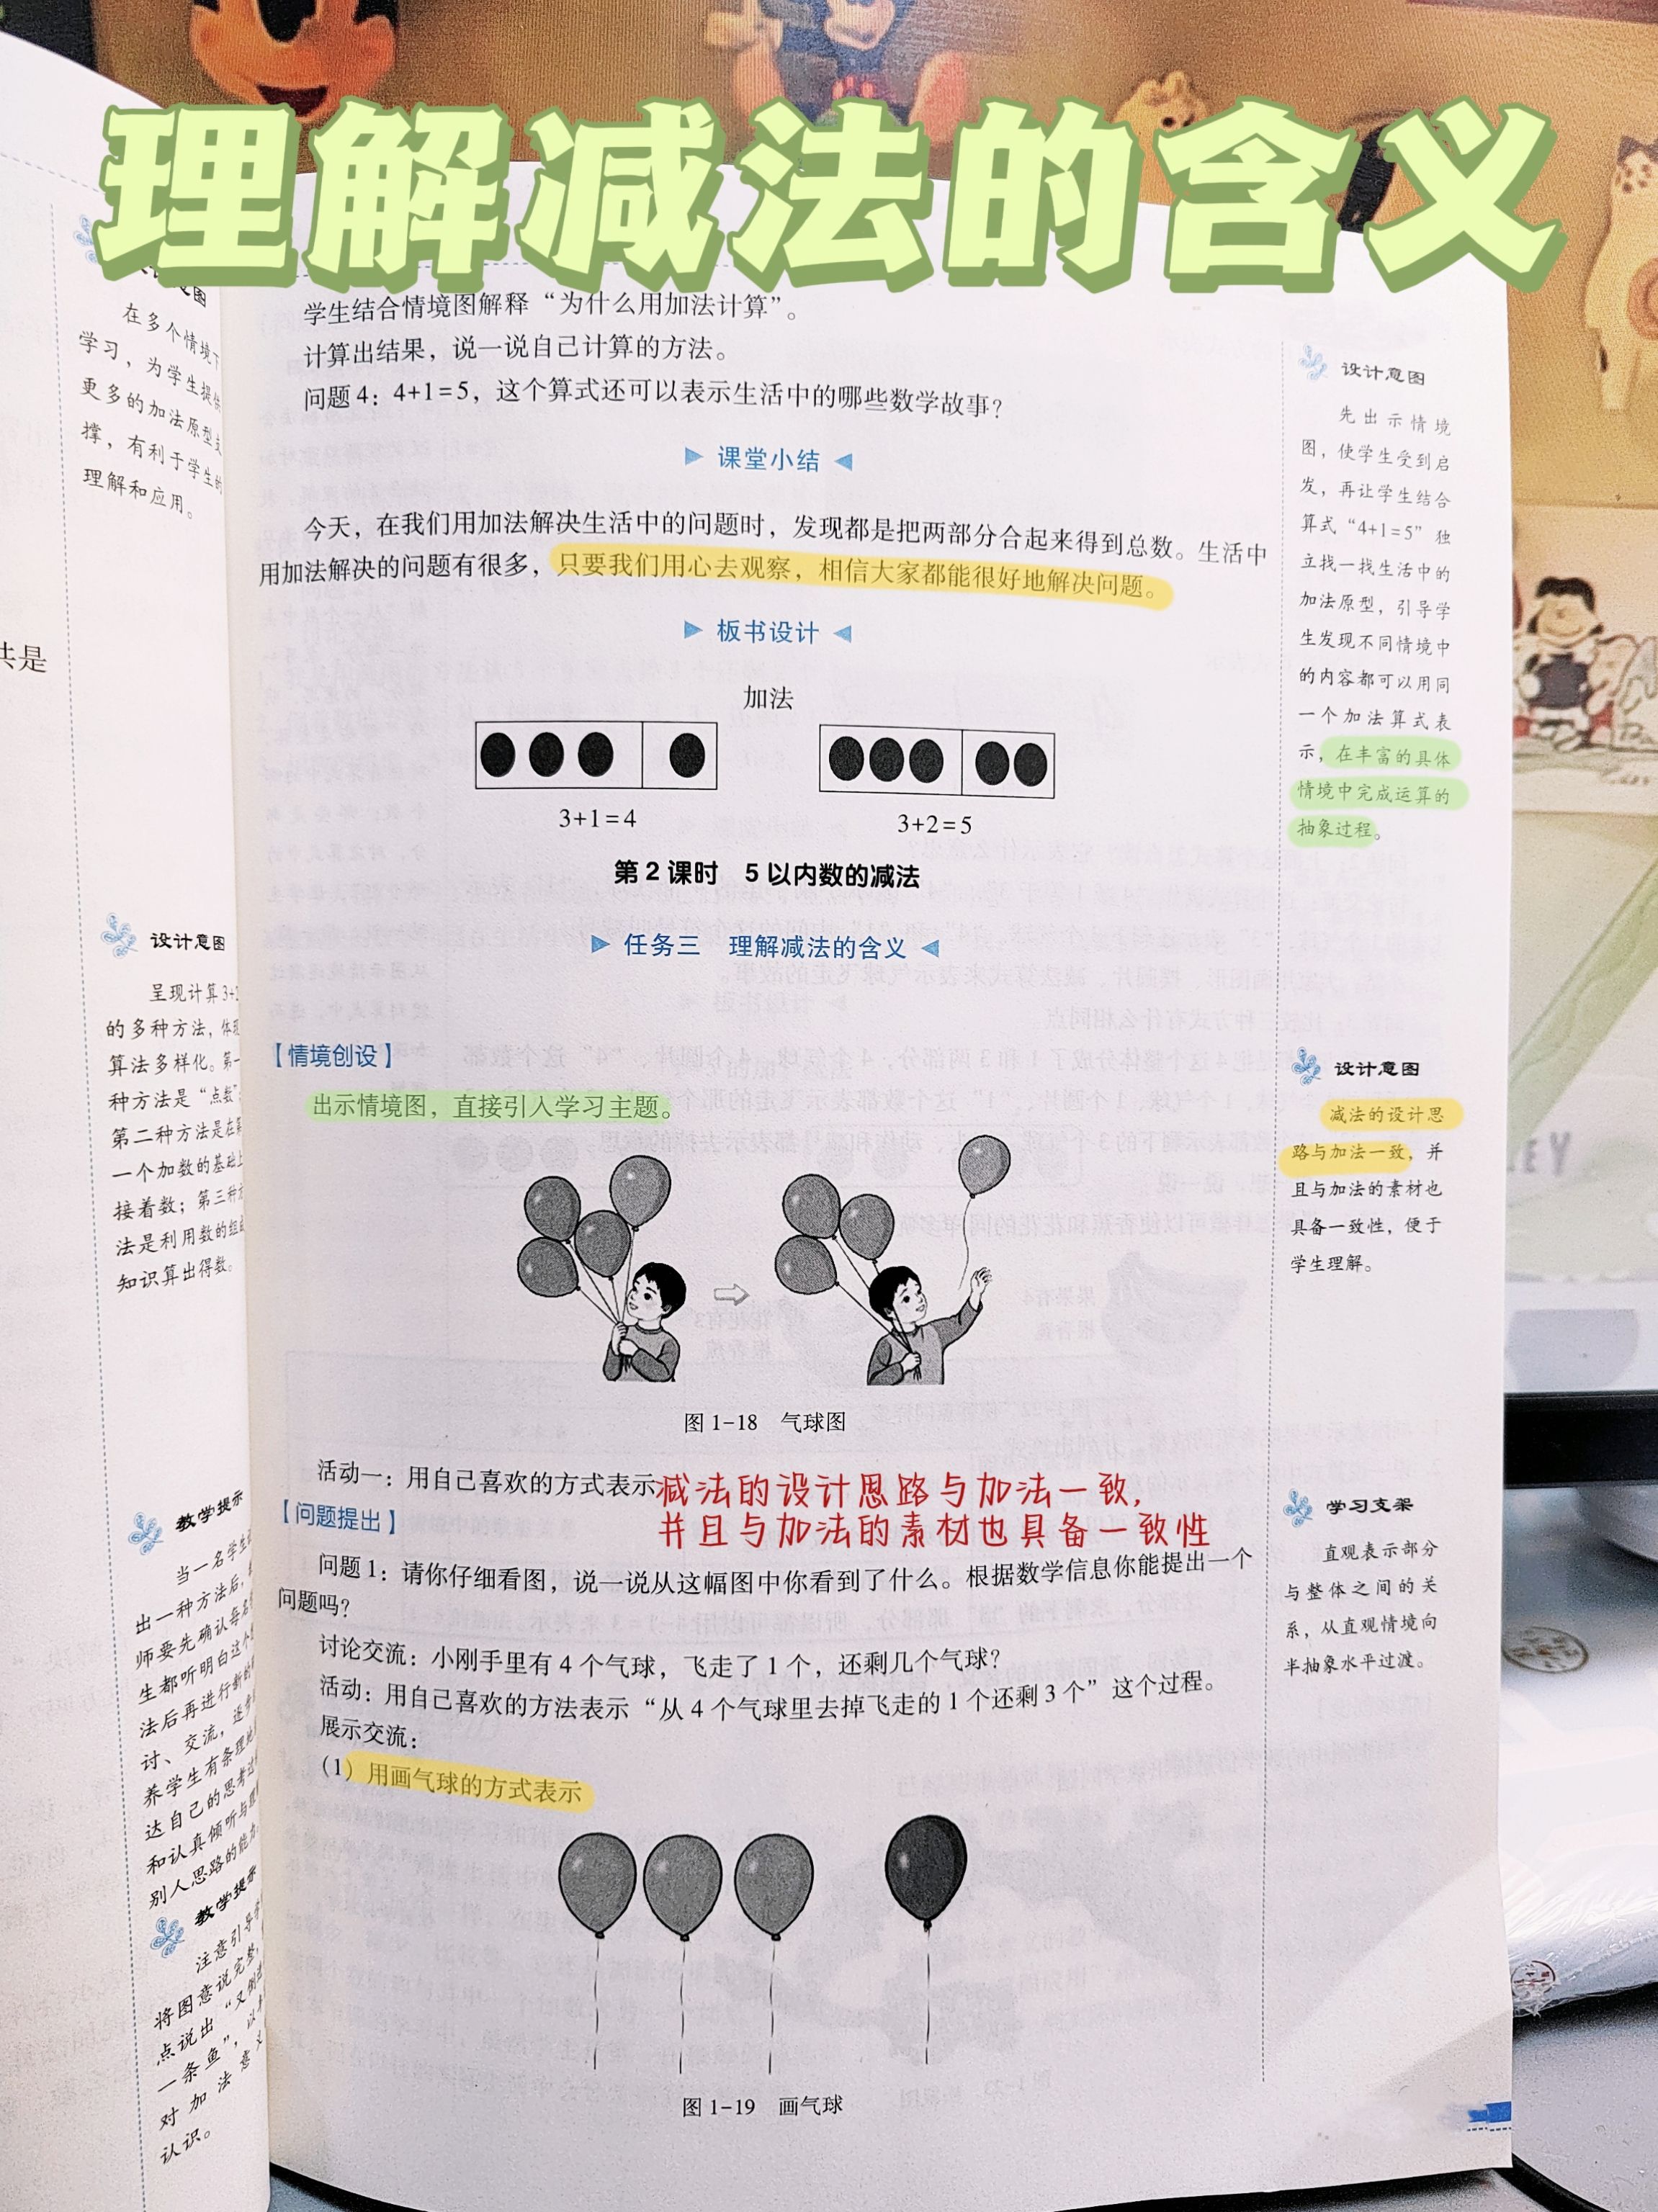 理解减法的含义
在多个情境下
学习，为学生提供
更多的加法原型支
撑，有利于学生的
理解和应用。
共是
设计意图
呈现计算3+2
的多种方法，体现
算法多样化。第一
种方法是“点数”；
第二种方法是在
一个加数的基础上
接着数；第三种方
法是利用数的组成
知识算出得数。
教学提示
当一名学生
出一种方法后，
师要先确认每名
生都听明白这个
法后再进行新的
讨、交流，逐步
养学生有条理地
达自己的思考过
和认真倾听与理
别人思路的能力
教学提示
注意引导
将图意说完整，
点说出“又
一条鱼”，以
对加法意义
认识。
学生结合情境图解释“为什么用加法计算”。
计算出结果，说一说自己计算的方法。
问题4：4+1=5，这个算式还可以表示生活中的哪些数学故事？
课堂小结
今天，在我们用加法解决生活中的问题时，发现都是把两部分合起来得到总数。生活中
用加法解决的问题有很多，只要我们用心去观察，相信大家都能很好地解决问题。
板书设计
加法
3+1=4
3+2=5
第2课时 5以内数的减法
任务三 理解减法的含义
【情境创设】
出示情境图，直接引入学习主题。
图1-18 气球图
活动一：用自己喜欢的方式表示
减法的设计思路与加法一致，
并且与加法的素材也具备一致性
【问题提出】
问题1：请你仔细看图，说一说从这幅图中你看到了什么。根据数学信息你能提出一个
问题吗？
讨论交流：小刚手里有4个气球，飞走了1个，还剩几个气球？
活动：用自己喜欢的方法表示“从4个气球里去掉飞走的1个还剩3个”这个过程。
展示交流：
（1）用画气球的方式表示
图1-19 画气球
设计意图
先出示情境
图，使学生受到启
发，再让学生结合
算式“4+1=5”独
立找一找生活中的
加法原型，引导学
生发现不同情境中
的内容都可以用同
一个加法算式表
示，在丰富的具体
情境中完成运算的
抽象过程。
设计意图
减法的设计思
路与加法一致，并
且与加法的素材也
具备一致性，便于
学生理解。
学习支架
直观表示部分
与整体之间的关
系，从直观情境向
半抽象水平过渡。